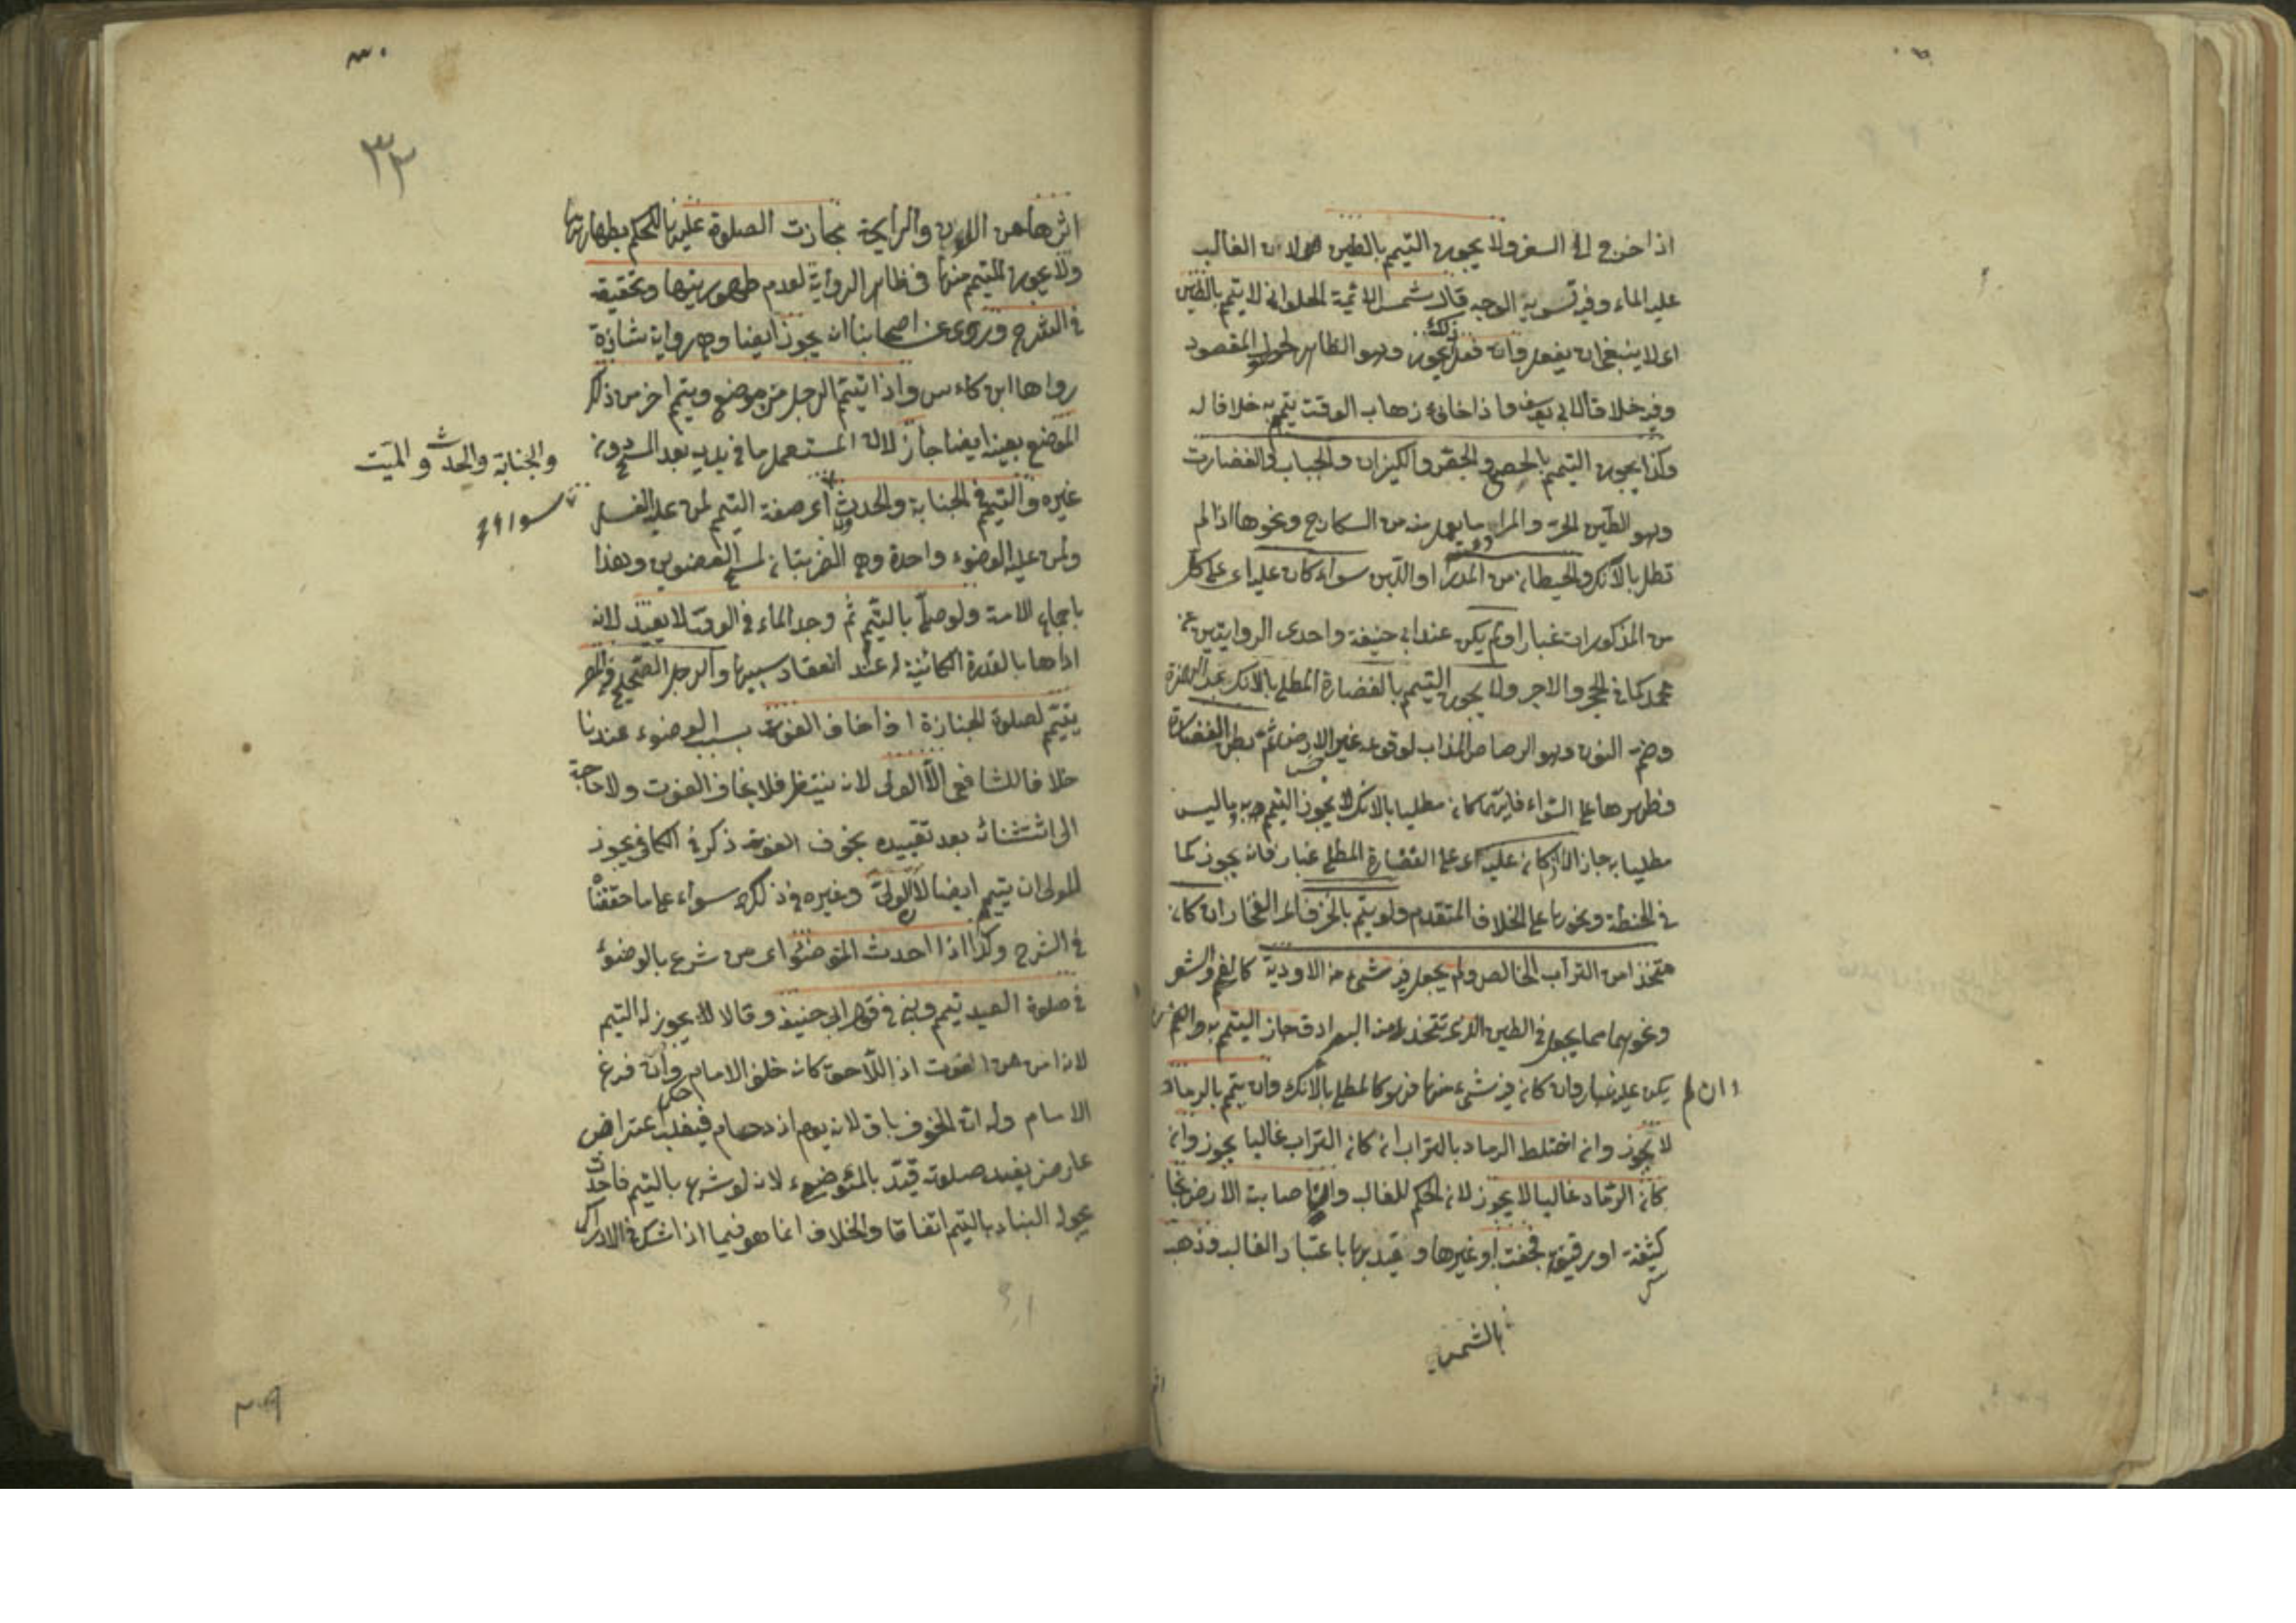 اذا خرج الى السفر ولا يجوز التيمم بالطين لان الغالب
عليه الماء وفيه تسوية الوجه قال شمس الائمة الحلوانى لا يتيمم بالطين
اى لا ينبغى ان يفعل وان فعل ذلك يجوز وهو الظاهر لحصول المقصود
وفيه خلاف ابى يوسف واذا خاف ذهاب الوقت يتيمم به خلافا له
وكذا يجوز التيمم بالجص والكيزان والجباب والغضارة
وهو الطين الحر والمراد ما يعمل منه من السكارج ونحوها اذا لم
تطل بالآنك والحيطان من المدر او اللبن سواء كان عليه اى على كل
من المذكورات غبار او لم يكن عند ابى حنيفة واحدى الروايتين عن
محمد كما فى الحجر والاجر ولا يجوز التيمم بالغضارة المطلى بالآنك بمد الهمزة
وضم النون وهو الرصاص المذاب لوقوعه على غير الارض ثم بطن الغضارة
وظهرها على السواء فايهما كان مطليا بالآنك لا يجوز التيمم به وما ليس
مطليا به جاز الا اذا كان عليه اى على الغضارة المطلى غبار فانه يجوز كما
فى الحنطة ونحوها على الخلاف المتقدم ولو تيمم بالخزف اى الفخار ان كان
متخذا من التراب الخالص ولم يجعل فيه شىء من الادوية كالفحم والشعر
ونحوهما مما يجعل فى الطين الذى تتخذ منه البوادق جاز التيمم به
وان لم يكن عليه غبار وان كان فيه شىء منها فهو كالمطلى بالآنك وان تيمم بالرماد
لا يجوز وان اختلط الرماد بالتراب ان كان التراب غالبا يجوز وان
كان الرماد غالبا لا يجوز لان الحكم للغالب واذا اصابت الارض نجاسة
كثيفة او رقيقة فجفت او غيرها وقيد بها باعتبار الغالب وذهب
بالشمس
٣٣
اثرها من اللون والرايحة جازت الصلوة عليها للحكم بطهارتها
ولا يجوز التيمم منها فى ظاهر الرواية لعدم طهوريتها وتحقيقه
فى الشرح وروى عن اصحابنا انه يجوز ايضا وهى رواية شاذة
رواها ابن كاس واذا تيمم الرجل من موضع وتيمم اخر من ذلك
الموضع بعينه ايضا جاز لان المستعمل ما فى يديه بعد المسح دون
غيره والتيمم فى الجنابة والحدث اى صفة التيمم لمن عليه الغسل
ولمن عليه الوضوء واحدة وهى الضربتان لمسح العضوين وهذا
باجماع الامة ولو صلى بالتيمم ثم وجد الماء فى الوقت لا يعيد لانه
اداها بالقدرة الكائنة له عند انعقاد سببها والرجل الصحيح فى المصر
يتيمم لصلوة الجنازة اذا خاف الفوت بسبب الوضوء عندنا
خلافا للشافعى الا الولى لانه ينتظر فلا يخاف الفوت ولا حاجة
الى استثنائه بعد تقييده بخوف الفوت ذكره فى الكافى يجوز
للولى ان يتيمم ايضا لان الولى وغيره فى ذلك سواء على ما حققنا
فى الشرح وكذا اذا احدث المتوضئ اى من شرع بالوضوء
فى صلوة العيد تيمم وبنى فى قول ابى حنيفة وقالا لا يجوز له التيمم
لانه امن من الفوت اذ اللاحق كانه خلف الامام حكما وان فرغ
الامام وله ان الخوف باق لانه يوم ازدحام فيغلب اعتراض
عارض يفسد صلوته قيد بالمتوضئ لانه لو شرع بالتيمم فاحدث
يجوز البناء بالتيمم اتفاقا والخلاف انما هو فيما اذا شك فى الادراك
والجنابة والحدث والميت
سواء